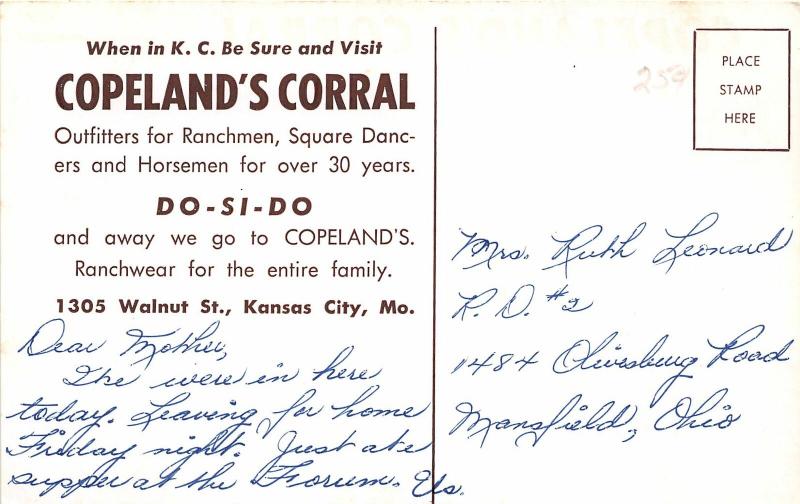 When in K. C. Be Sure and Visit
COPELAND'S CORRAL
Outfitters for Ranchmen, Square Danc-
ers and Horsemen for over 30 years.
DO-SI-DO
and away we go to COPELAND'S.
Ranchwear for the entire family.
1305 Walnut St., Kansas City, Mo.
Dear Mother,
We were in here
today. Leaving for home
Friday night. Just ate
supper at the Forum. Us.
PLACE
STAMP
HERE
25¢
Mrs. Ruth Leonard
R. D. #2
1484 Olivesburg Road
Mansfield, Ohio